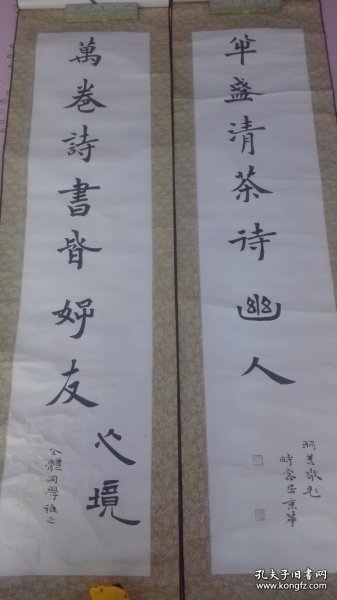 半盞清茶待幽人
時客居京華
萬卷詩書皆好友
心境
全體同學雅正
孔夫子旧书网
www.kongfz.com